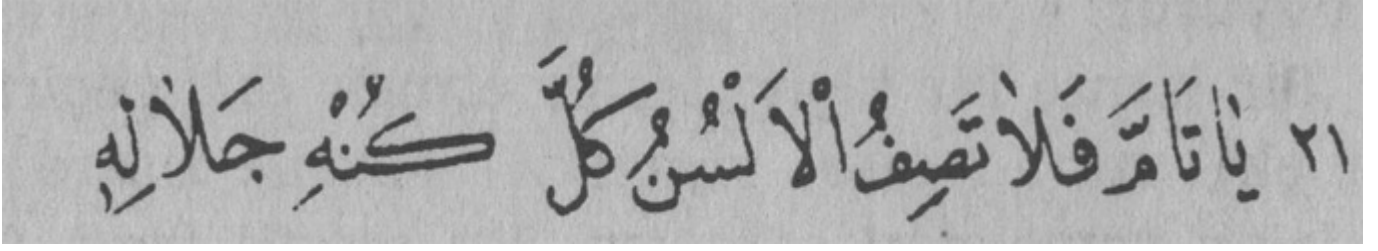 ٢١ يَا تَامَّ فَلَا تَصِفُ الْأَلْسُنُ كُلَّ كُنْهِ جَلَالِهِ